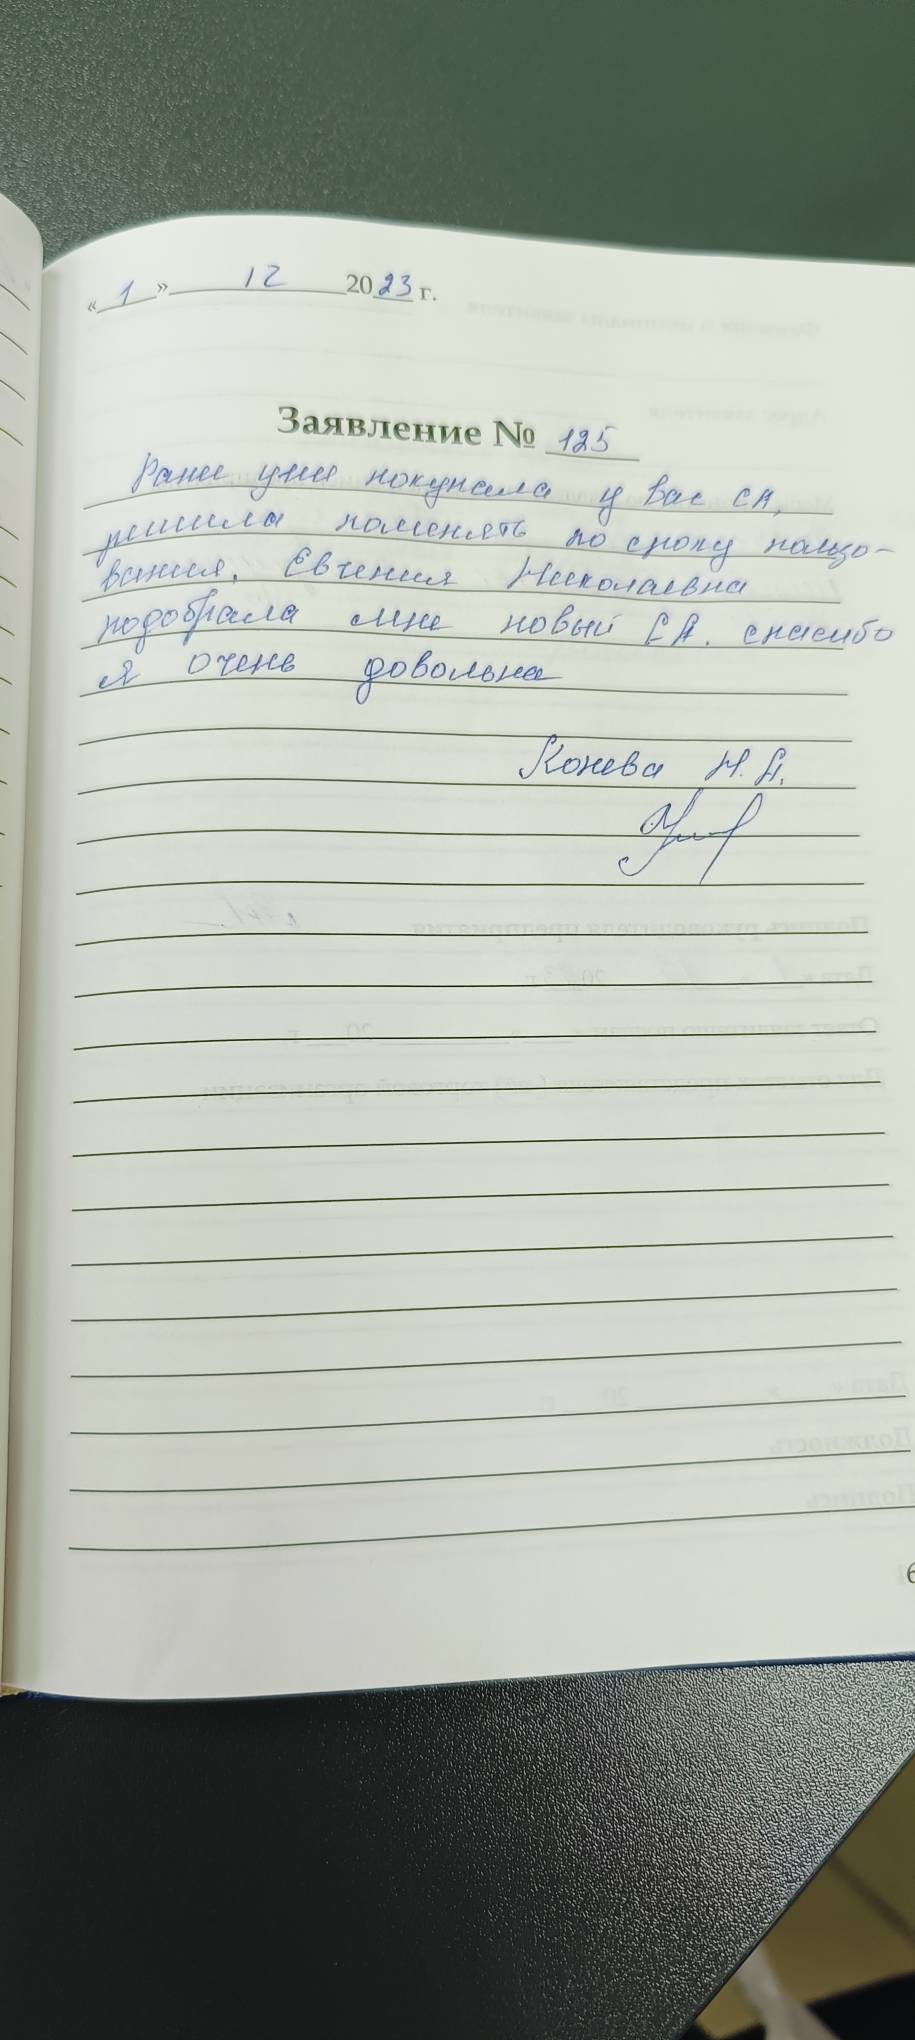 « 1 » 12 2023 г.
Заявление № 125
Ранее уже покупала у вас СА,
решила поменять по сроку пользо-
вания. Евгения Николаевна
подобрала мне новый СА. спасибо
я очень довольна
Конева Н.А.